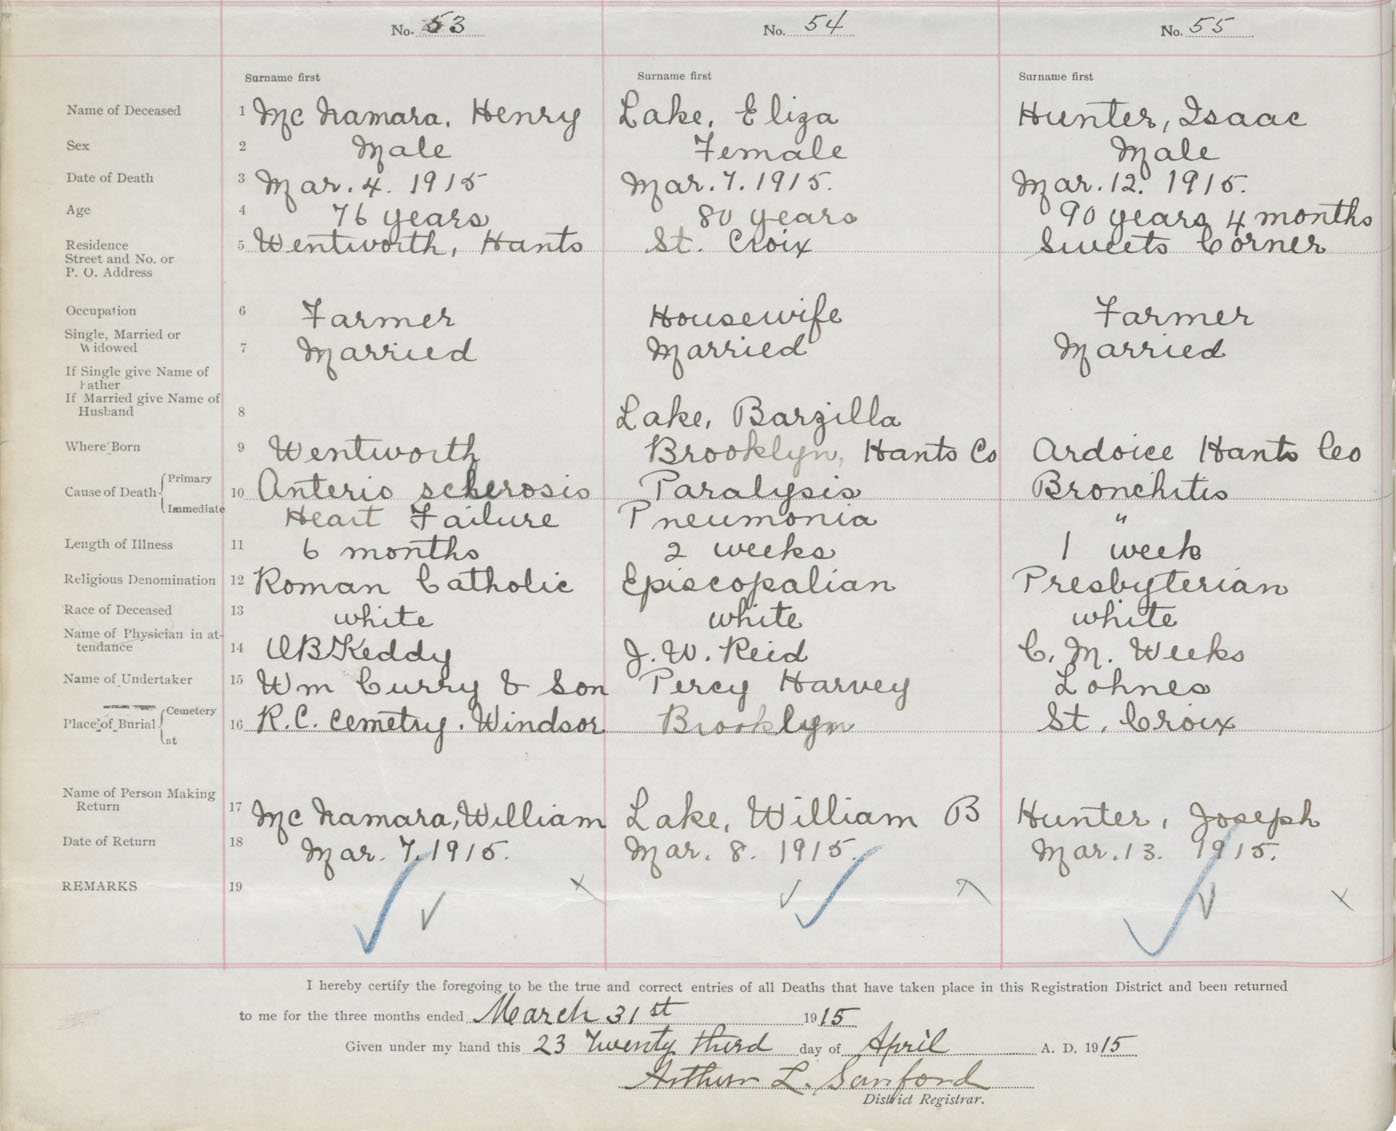 No. 53 No. 54 No. 55
Surname first Surname first Surname first
Name of Deceased 1 Mc Namara, Henry Lake, Eliza Hunter, Isaac
Sex 2 Male Female Male
Date of Death 3 Mar. 4. 1915 Mar. 7. 1915. Mar. 12. 1915.
Age 4 76 years 80 years 90 years 4 months
Residence 5 Wentworth, Hants St. Croix Sweets Corner
Street and No. or
P. O. Address
Occupation 6 Farmer Housewife Farmer
Single, Married or
Widowed 7 Married Married Married
If Single give Name of
Father
If Married give Name of
Husband 8 Lake, Barzilla
Where Born 9 Wentworth Brooklyn, Hants Co Ardoice Hants Co
Primary
Cause of Death 10 Anterio schlerosis Paralysis Bronchitis
Immediate Heart Failure Pneumonia "
Length of Illness 11 6 months 2 weeks 1 week
Religious Denomination 12 Roman Catholic Episcopalian Presbyterian
Race of Deceased 13 white white white
Name of Physician in at-
tendance 14 OB Keddy J. W. Reid C. M. Weeks
Name of Undertaker 15 Wm Curry & Son Percy Harvey Lohnes
Cemetery
Place of Burial 16 R.C. Cemetry. Windsor Brooklyn St. Croix
at
Name of Person Making
Return 17 Mc Namara, William Lake, William B Hunter, Joseph
Date of Return 18 Mar. 7. 1915. Mar. 8. 1915. Mar. 13. 1915.
REMARKS 19
I hereby certify the foregoing to be the true and correct entries of all Deaths that have taken place in this Registration District and been returned
to me for the three months ended March 31st 1915
Given under my hand this 23 Twenty third day of April A. D. 1915
Arthur L. Sanford
District Registrar.